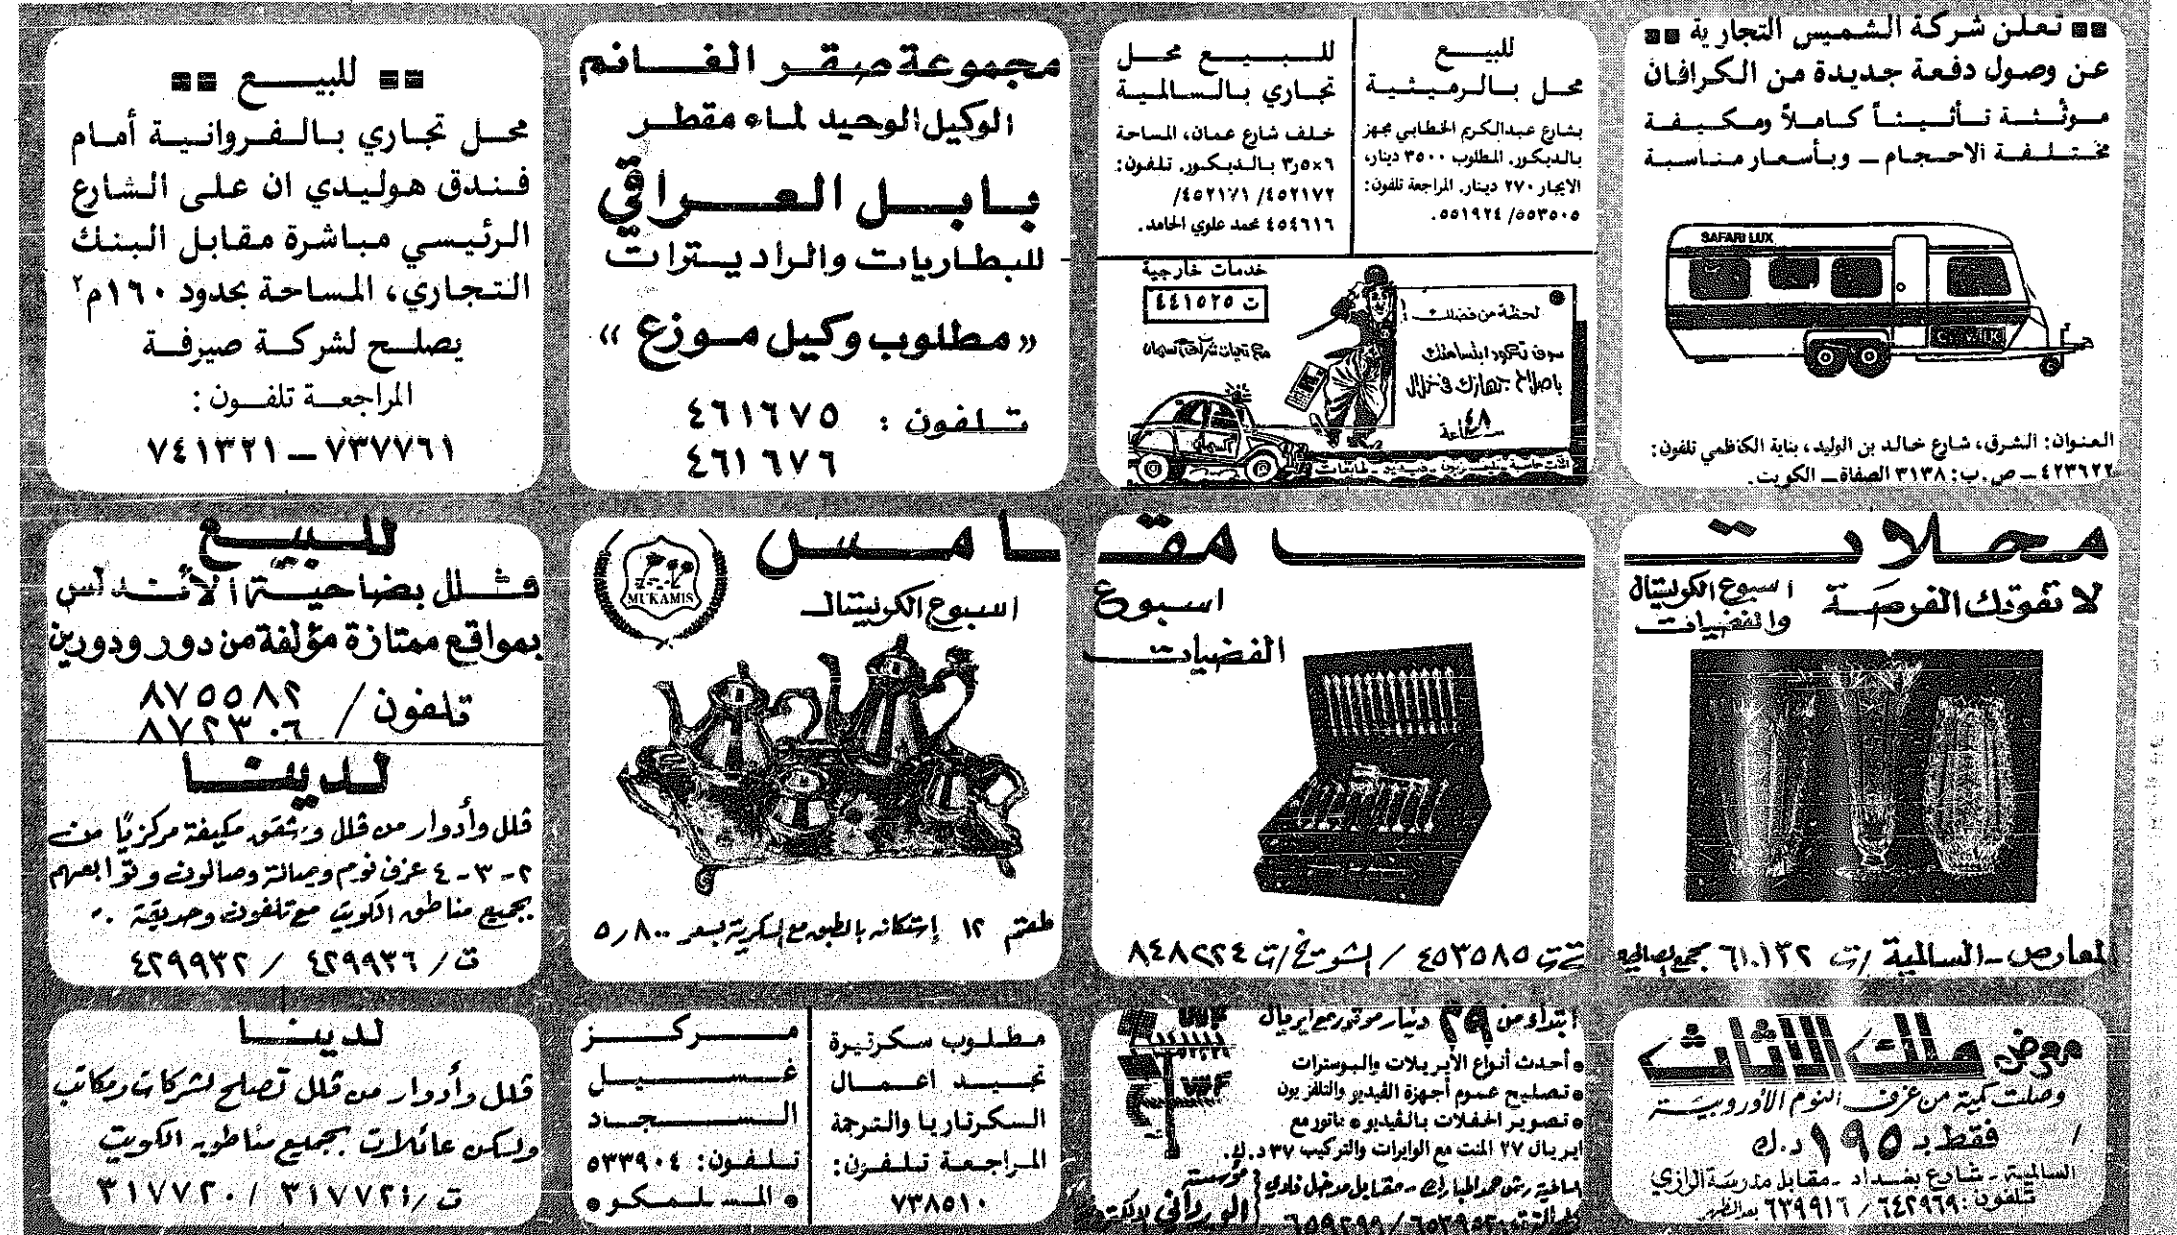 تعلن شركة الشميس التجارية
عن وصول دفعة جديدة من الكرافان
مؤثثة تأثيثاً كاملاً ومكيفة
مختلفة الاحجام ـ وبأسعار مناسبة
SAFARI LUX
العنوان: الشرق، شارع خالد بن الوليد، بناية الكاظمي تلفون:
٤٢٣٦٢٢ ـ ص.ب: ٣١٣٨ الصفاة ـ الكويت.
للبيع
محل بالرميثية
بشارع عبدالكريم الخطابي مجهز
بالديكور. المطلوب ٣٥٠٠ دينار،
الايجار ٢٧٠ دينار. المراجعة تلفون:
٥٥٣٥٠٥/ ٥٥١٩٢٤.
للبيع محل
تجاري بالسالمية
خلف شارع عمان، المساحة
٦×٣٫٥ بالديكور. تلفون:
٤٥٢١٧٢/ ٤٥٢١٧١/
٤٥٤٦١٦ محمد علوي الحامد.
خدمات خارجية
ت ٤٤١٥٢٥
لحظة من فضلك !
سوف تعود ابتسامتك
باصلاح جهازك في خلال
٤٨
ساعة
مجموعة صقر الغانم
الوكيل الوحيد لماء مقطر
بابل العراقي
للبطاريات والراديترات
«مطلوب وكيل موزع»
تلفون: ٤٦١٦٧٥
٤٦١٦٧٦
للبيع
محل تجاري بالفروانية أمام
فندق هوليدي ان على الشارع
الرئيسي مباشرة مقابل البنك
التجاري، المساحة بحدود ١٦٠م٢
يصلح لشركة صيرفة
المراجعة تلفون:
٧٣٧٧٦١ ـ ٧٤١٣٢١
محلات مقامس
لا تفوتك الفرصة
اسبوع الكريستال
والفضيات
المعارض ـ السالمية /ت ٦١٠١٣٢ مجمع الصالحية
اسبوع
الفضيات
ت ٤٥٣٥٨٥ / الشويخ /ت ٨٤٨٢٢٤
MUKAMIS
اسبوع الكريستال
طقم ١٢ إستكانه بالطبق مع السكرية بسعر ٥٫٨٠٠
للبيع
فلل بضاحية الأندلس
بمواقع ممتازة مؤلفة من دور ودورين
تلفون / ٨٧٥٥٨٢
٨٧٢٣٠٦
لدينا
فلل وأدوار من فلل وشقق مكيفة مركزيًا من
٢ - ٣ - ٤ غرف نوم وصالة وصالون وتوابعهم
بجميع مناطق الكويت مع تلفون وحديقة .
ت / ٤٢٩٩٣٦ / ٤٢٩٩٣٢
معرض ملك الاثاث
وصلت كمية من غرف النوم الأوروبية
فقط بـ ١٩٥ د.ك
السالمية ـ شارع بغداد ـ مقابل مدرسة الرازي
تلفون: ٦٤٢٩٦٩ / ٦٣٩٩١٦ بعد الظهر
ابتداء من ٢٩ دينار موتور مع ايريال
• أحدث أنواع الأيريلات والبوسترات
• تصليح عموم أجهزة الفيديو والتلفزيون
• تصوير الحفلات بالفيديو • ماتور مع
ايريال ٢٧ المنت مع الوايرات والتركيب ٣٧ د.ك.
مؤسسة
مطلوب سكرتيرة
تجيد اعمال
السكرتاريا والترجمة
المراجعة تلفون:
٧٣٨٥١٠
مركز
غسيل
السجاد
تلفون: ٥٣٣٩٠٤
• المسلمكو •
لدينا
فلل وأدوار من فلل تصلح لشركات ومكاتب
ولسكن عائلات بجميع مناطق الكويت
ت/ ٣١٧٧٢١ / ٣١٧٧٢٠